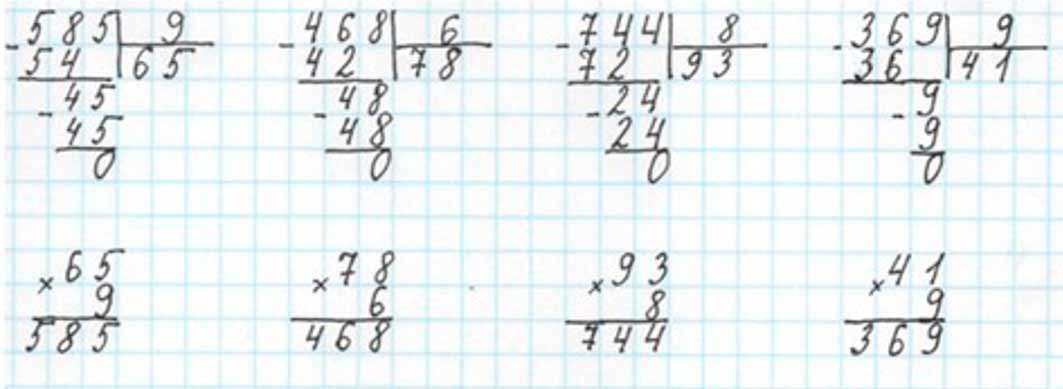 -585 9 -468 6 -744 8 -369 9
54 65 42 78 72 93 36 41
-45 -48 -24 -9
45 48 24 9
0 0 0 0
×65 ×78 ×93 ×41
9 6 8 9
585 468 744 369